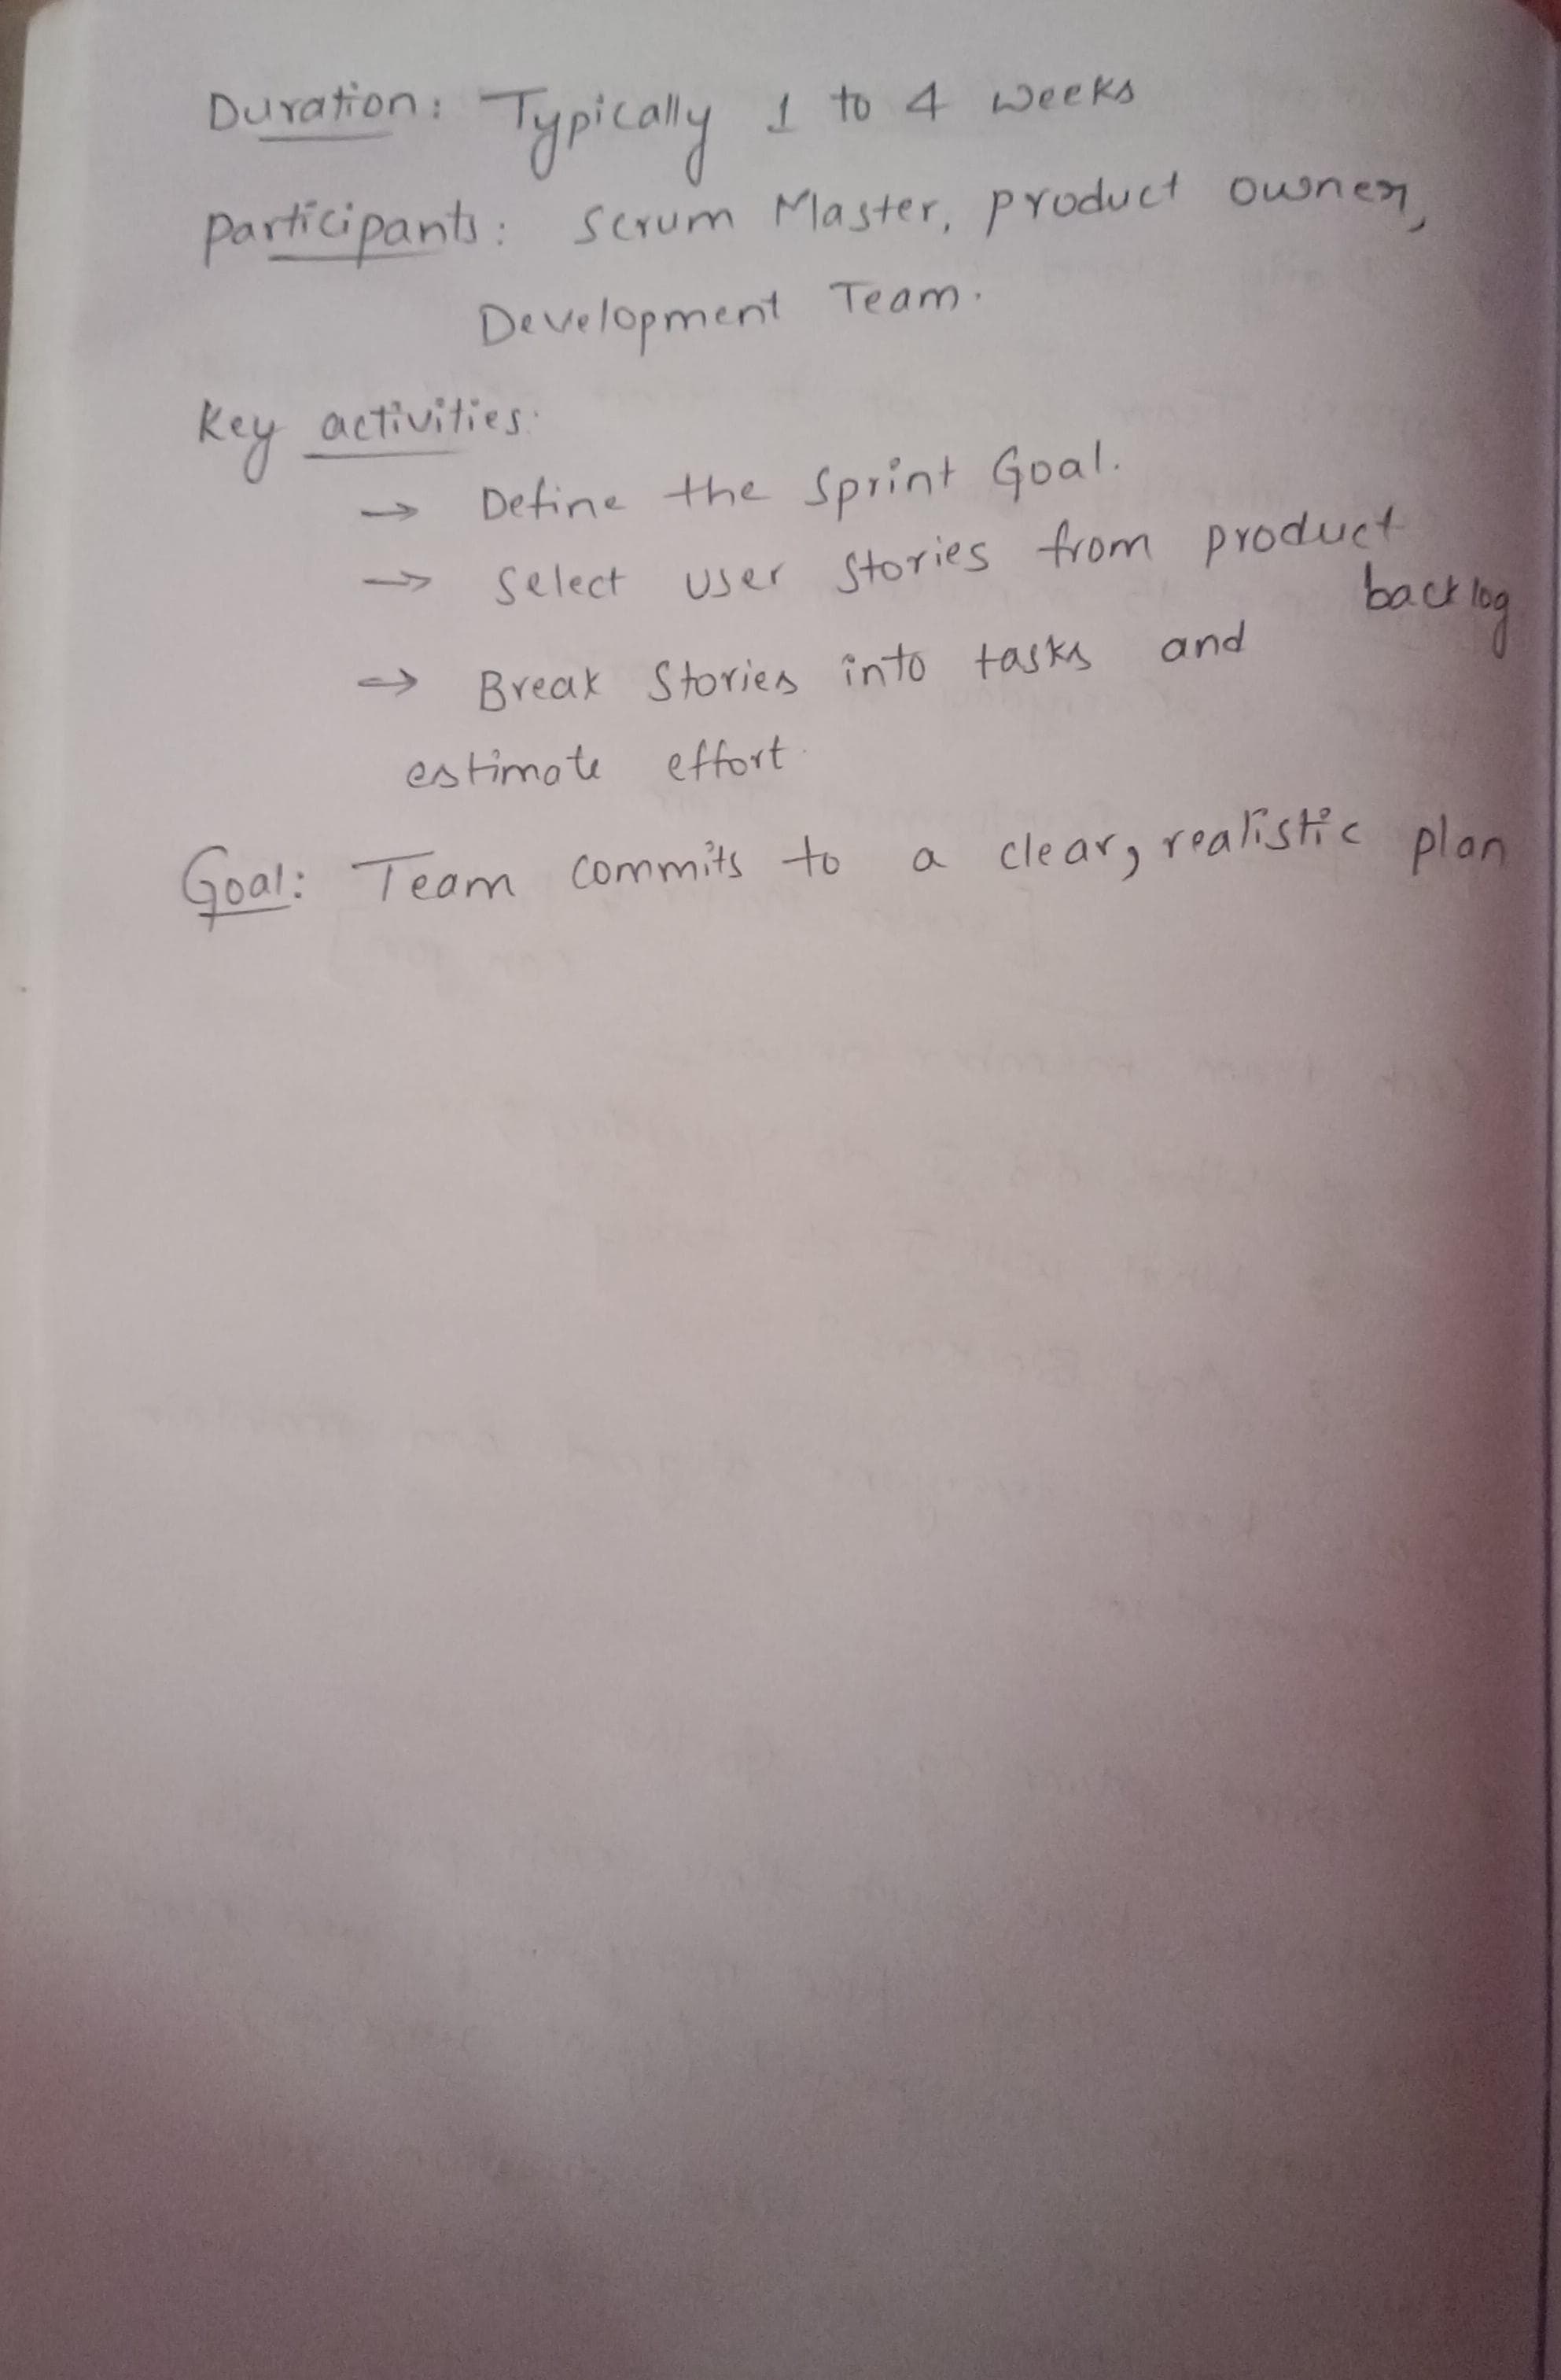 Duration: Typically 1 to 4 weeks
participants: Scrum Master, product owner,
Development Team.
Key activities:
→ Define the Sprint Goal.
→ Select user stories from product
backlog
→ Break Stories into tasks and
estimate effort.
Goal: Team commits to a clear, realistic plan